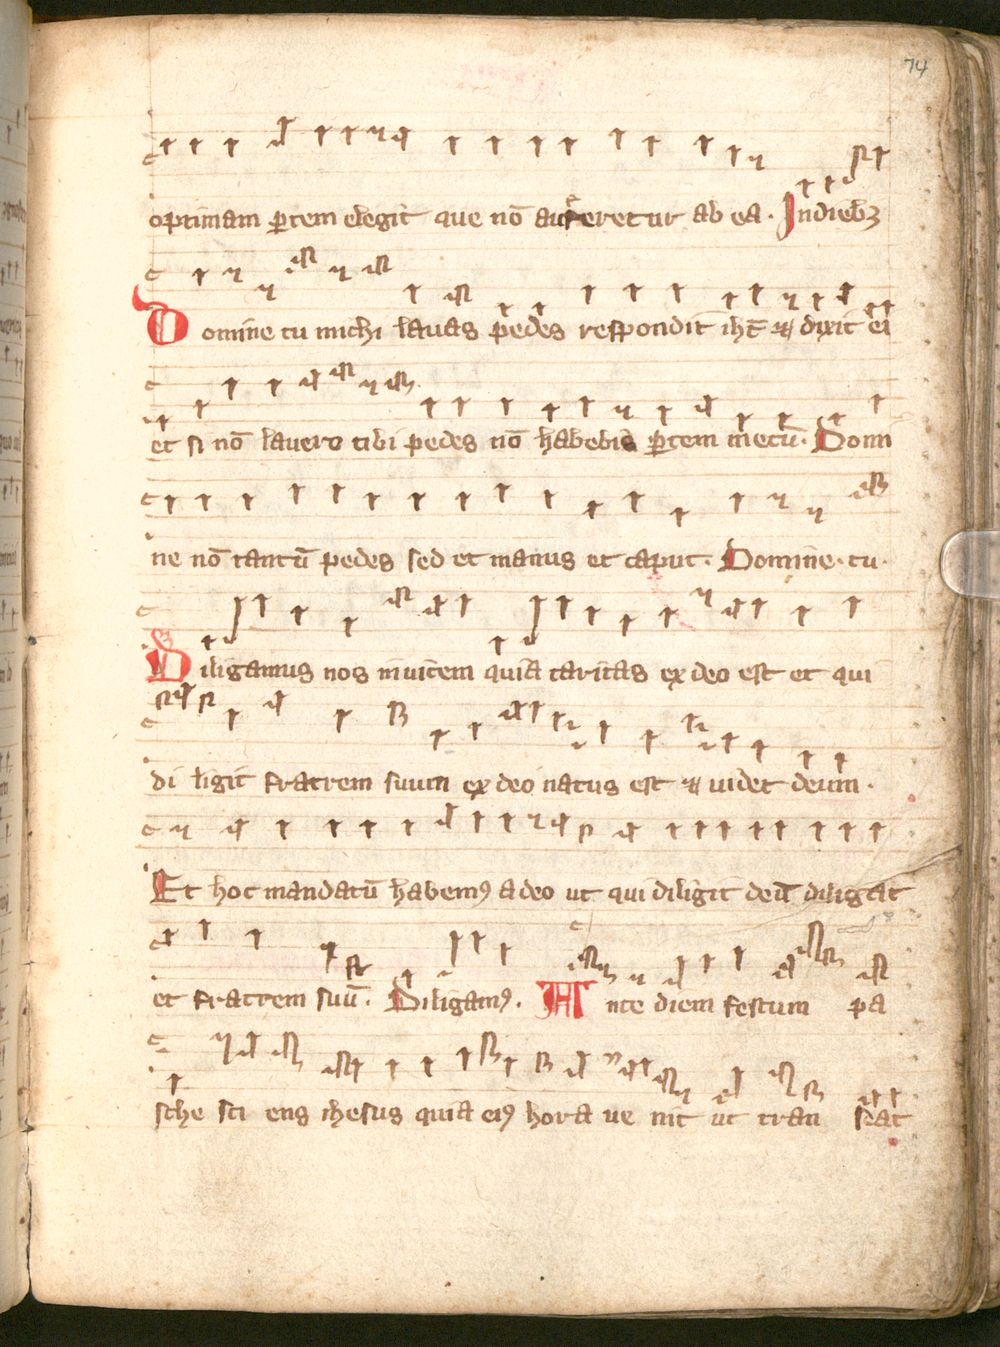 74
optimam ꝑtem elegit que nō auferetur ab ea. Indiebꝫ
Domine tu michi lavas pedes respondit ihc̄ ⁊ dixit ei
et si nō lavero tibi pedes nō habebis ꝑtem mecū. Domi
ne nō tantū pedes sed et manus et caput. Domine. tu.
Diligamus nos invicem quia caritas ex deo est et qui
di ligit fratrem suum ex deo natus est ⁊ videt deum.
Et hoc mandatū habemꝰ a deo ut qui diligit deū diligat
et fratrem suū. Diligamꝰ. Ante diem festum pa
sche sci ens ihesus quia eiꝰ hora ve nit ut tran seat